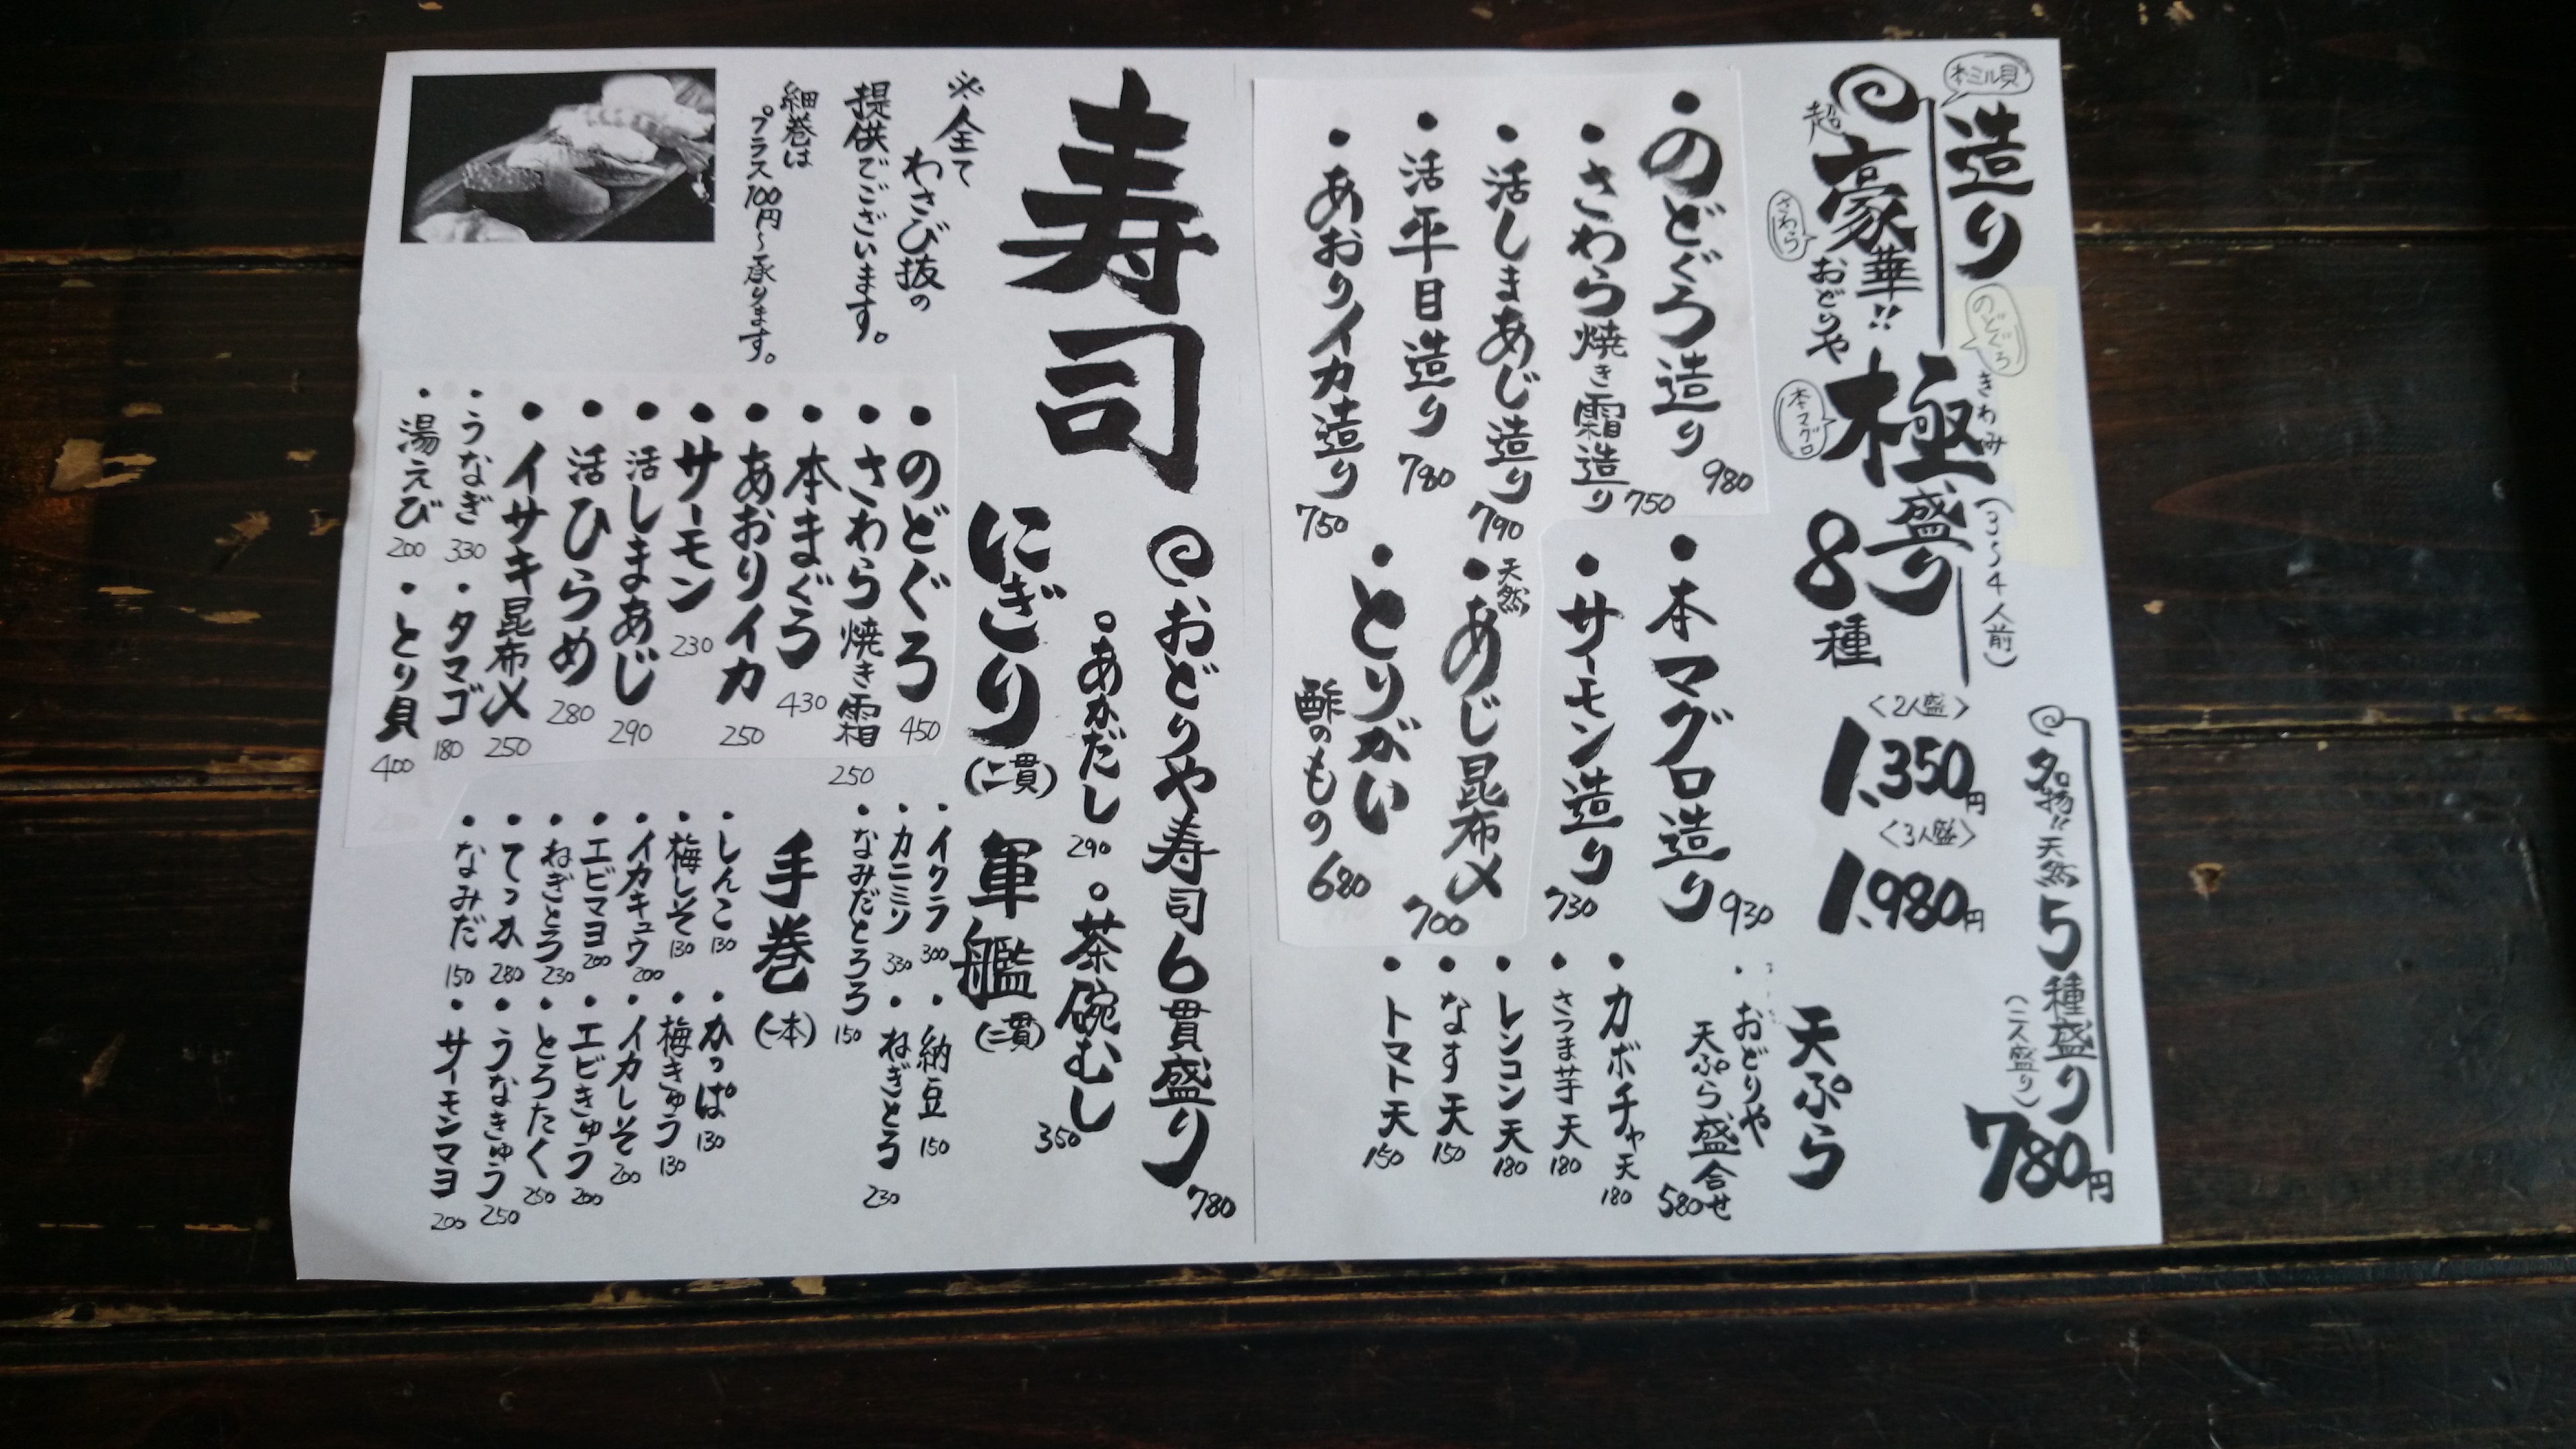 造り
本ミル貝
のどぐろ
超豪華!! おどりや
さわら
本マグロ
極盛り 8種
きわみ
(3〜4人前)
〈2人盛〉
1,350円
〈3人盛〉
1,980円
名物!! 天然5種盛り
(二人盛り)
780円
・のどぐろ造り 980
・さわら焼き霜造り 750
・活しまあじ造り 790
・活平目造り 780
・あおりイカ造り 750
・本マグロ造り 930
・サーモン造り 730
・天然あじ昆布〆 700
・とりがい酢のもの 680
天ぷら
・おどりや
天ぷら盛合せ 580
・カボチャ天 180
・さつま芋天 180
・レンコン天 180
・なす天 150
・トマト天 150
寿司
※全て
わさび抜の
提供でございます。
細巻は
プラス100円〜承ります。
おどりや寿司6貫盛り 780
。あかだし 290
。茶碗むし 350
にぎり(二貫)
・のどぐろ 450
・さわら焼き霜 250
・本まぐろ 430
・あおりイカ 250
・サーモン 230
・活しまあじ 290
・活ひらめ 280
・イサキ昆布〆 250
・うなぎ 330
・タマゴ 180
・湯えび 200
・とり貝 400
軍艦(二貫)
・イクラ 300
・納豆 150
・カニミソ 330
・ねぎとろ 230
・なみだとろろ 150
手巻(一本)
・しんこ 130
・かっぱ 130
・梅しそ 130
・梅きゅう 130
・イカキュウ 200
・イカしそ 200
・エビマヨ 200
・エビきゅう 200
・ねぎとろ 230
・とろたく 250
・てっか 280
・うなきゅう 250
・なみだ 150
・サーモンマヨ 200